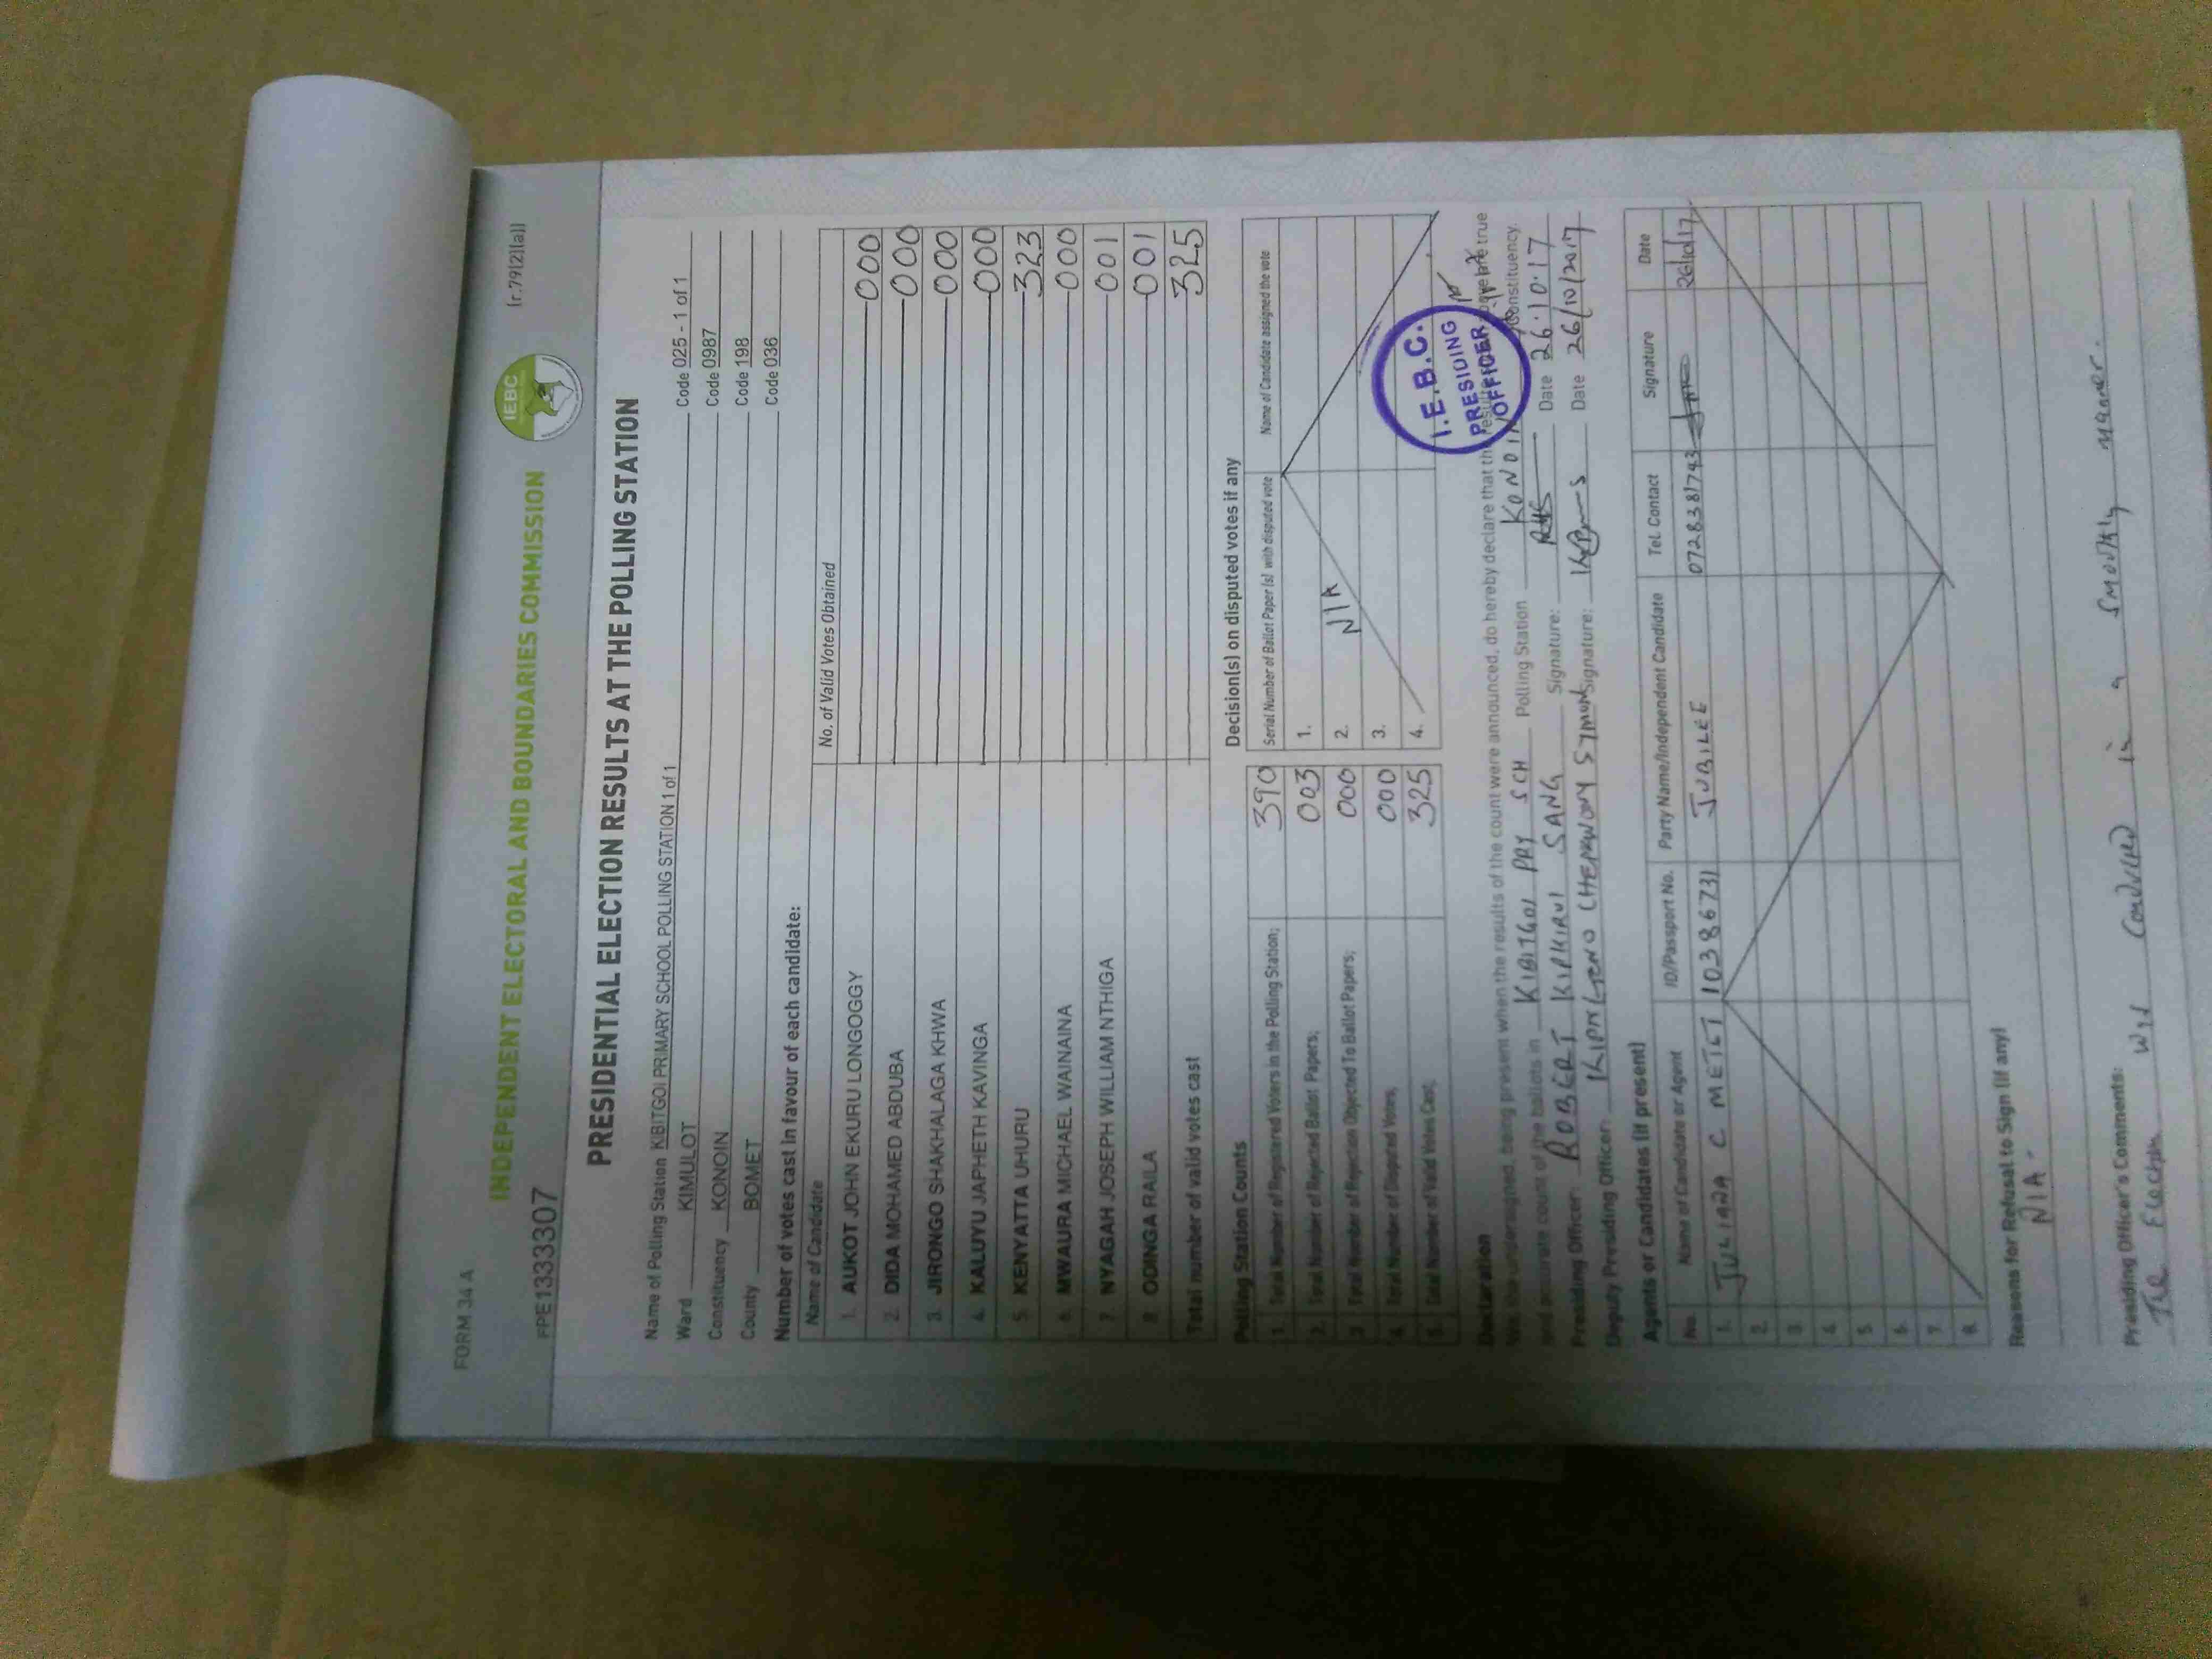 FORM 34 A
(r.79(2)(a))
IEBC
INDEPENDENT ELECTORAL AND BOUNDARIES COMMISSION
FPE1333307
PRESIDENTIAL ELECTION RESULTS AT THE POLLING STATION
Name of Polling Station KIBITGOI PRIMARY SCHOOL POLLING STATION 1 of 1 Code 025 - 1 of 1
Ward KIMULOT Code 0987
Constituency KONOIN Code 198
County BOMET Code 036
Number of votes cast in favour of each candidate:
Name of Candidate No. of Valid Votes Obtained
1. AUKOT JOHN EKURU LONGOGGY 000
2. DIDA MOHAMED ABDUBA 000
3. JIRONGO SHAKHALAGA KHWA 000
4. KALUYU JAPHETH KAVINGA 000
5. KENYATTA UHURU 323
6. MWAURA MICHAEL WAINAINA 000
7. NYAGAH JOSEPH WILLIAM NTHIGA 001
8. ODINGA RAILA 001
Total number of valid votes cast 325
Polling Station Counts
1. Total Number of Registered Voters in the Polling Station; 390
2. Total Number of Rejected Ballot Papers; 003
3. Total Number of Rejection Objected To Ballot Papers; 000
4. Total Number of Disputed Votes; 000
5. Total Number of Valid Votes Cast; 325
Decision(s) on disputed votes if any
Serial Number of Ballot Paper (s) with disputed vote Name of Candidate assigned the vote
1.
2. N/A
3.
4.
I.E.B.C.
PRESIDING
OFFICER
Declaration
We, the undersigned, being present when the results of the count were announced, do hereby declare that the results above are true
and accurate count of the ballots in KIBITGOI PRY SCH Polling Station KONOIN Constituency.
Presiding Officer: ROBERT KIPKIRUI SANG Signature: Date 26.10.17
Deputy Presiding Officer: KIPNGENO CHEPKWONY SYMON Signature: Date 26/10/2017
Agents or Candidates (if present)
No. Name of Candidate or Agent ID/Passport No. Party Name/Independent Candidate Tel. Contact Signature Date
1. JULIANA C METET 10386731 JUBILEE 0728381743 26/10/17
2.
3.
4.
5.
6.
7.
8.
Reasons for Refusal to Sign (if any)
N/A
Presiding Officer's Comments:
The Election was Conducted in a smoothly manner.